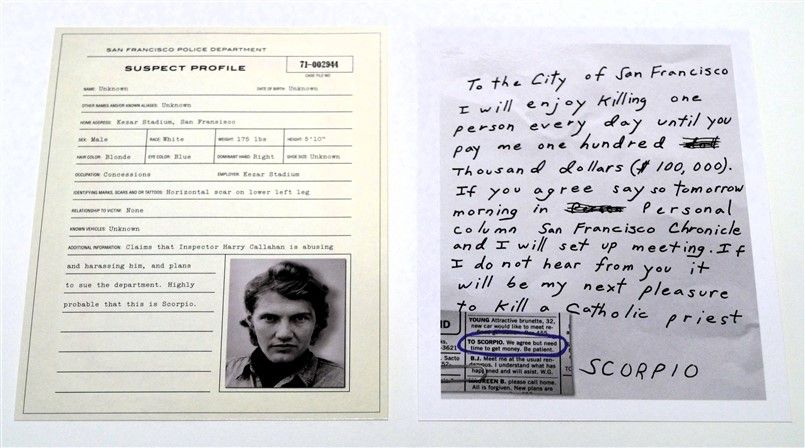 SAN FRANCISCO POLICE DEPARTMENT
SUSPECT PROFILE
71-002944
CASE FILE NO.
NAME: Unknown
DATE OF BIRTH: Unknown
OTHER NAMES AND/OR KNOWN ALIASES: Unknown
HOME ADDRESS: Kezar Stadium, San Francisco
SEX: Male RACE: White WEIGHT: 175 lbs HEIGHT: 5'10"
HAIR COLOR: Blonde EYE COLOR: Blue DOMINANT HAND: Right SHOE SIZE: Unknown
OCCUPATION: Concessions EMPLOYER: Kezar Stadium
IDENTIFYING MARKS, SCARS OR TATTOOS: Horizontal scar on lower left leg
RELATIONSHIP TO VICTIM: None
KNOWN VEHICLES: Unknown
ADDITIONAL INFORMATION: Claims that Inspector Harry Callahan is abusing
and harassing him, and plans
to sue the department. Highly
probable that this is Scorpio.
To the City of San Francisco
I will enjoy killing one
person every day until you
pay me one hundred
Thousand dollars ($100,000).
If you agree say so tomorrow
morning in Personal
column San Francisco Chronicle
and I will set up meeting. If
I do not hear from you it
will be my next pleasure
to kill a Catholic priest
YOUNG Attractive brunette, 32,
new car would like to meet re-
TO SCORPIO. We agree but need
time to get money. Be patient.
B.J. Meet me at the usual ren-
I understand what has
happened and will asist. W.G.
MAUREEN B. please call home.
All is forgiven. New plans are
-3621
Sacto
SCORPIO